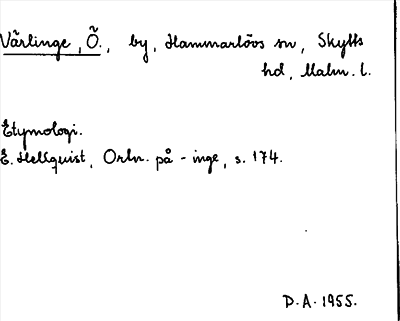 Värlinge, Ö., by, Hammarlövs sn, Skytts
hd, Malm. l.
Etymologi.
E. Hellquist, Ortn. på -inge, s. 174.
D.A. 1955.